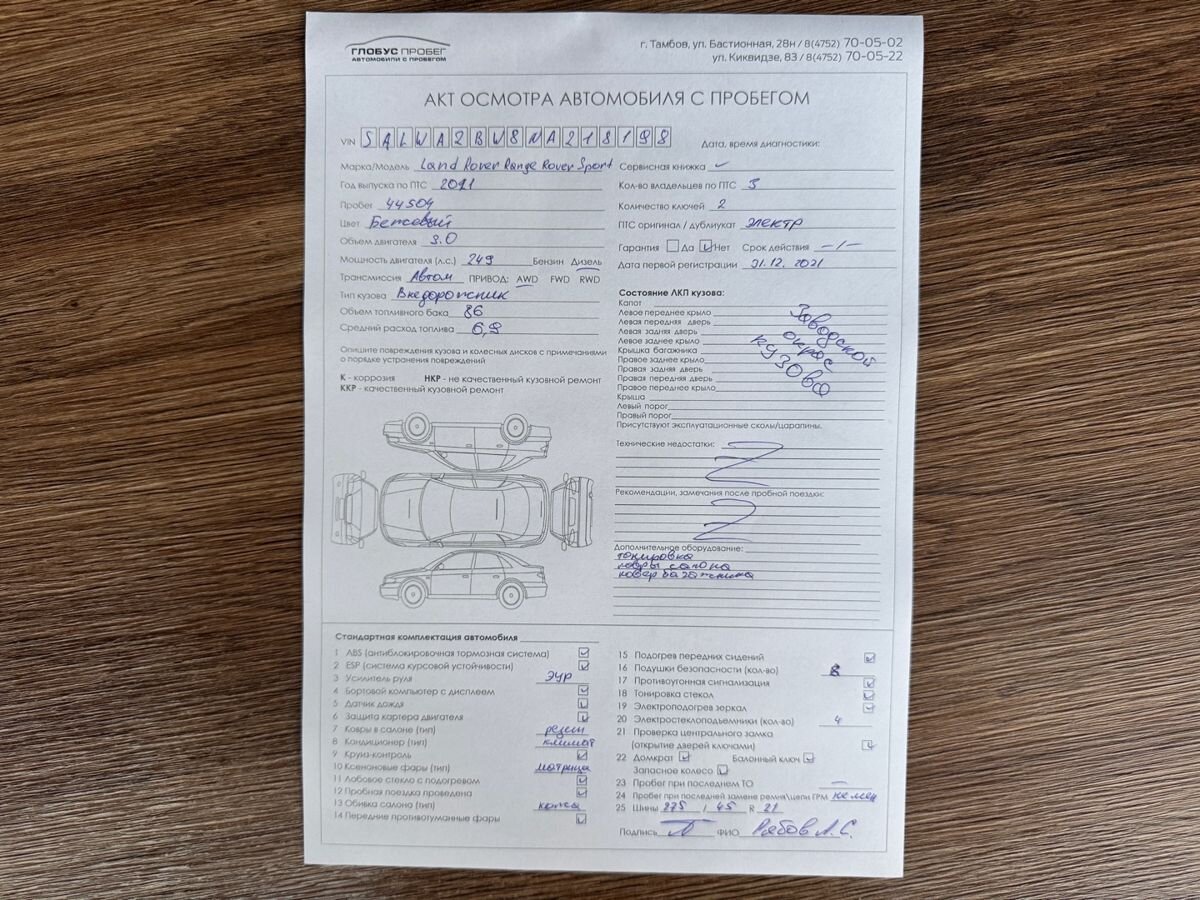 ГЛОБУС ПРОБЕГ
АВТОМОБИЛИ С ПРОБЕГОМ
г. Тамбов, ул. Бастионная, 28н / 8(4752) 70-05-02
ул. Киквидзе, 83 / 8(4752) 70-05-22
АКТ ОСМОТРА АВТОМОБИЛЯ С ПРОБЕГОМ
VIN SALWA2BW8NA218198
Дата, время диагностики:
Марка/Модель Land Rover Range Rover Sport
Год выпуска по ПТС 2021
Пробег 44504
Цвет Бежевый
Объем двигателя 3.0
Мощность двигателя (л.с.) 249 Бензин Дизель
Трансмиссия Автом ПРИВОД: AWD FWD RWD
Тип кузова Внедорожник
Объем топливного бака 86
Средний расход топлива 6,9
Опишите повреждения кузова и колесных дисков с примечаниями
о порядке устранения повреждений
К - коррозия НКР - не качественный кузовной ремонт
ККР - качественный кузовной ремонт
Сервисная книжка
Кол-во владельцев по ПТС 3
Количество ключей 2
ПТС оригинал / дубликат электр
Гарантия Да Нет Срок действия –/–
Дата первой регистрации 31.12.2021
Состояние ЛКП кузова:
Капот
Левое переднее крыло
Левая передняя дверь
Левая задняя дверь
Левое заднее крыло
Крышка багажника
Правое заднее крыло
Правая задняя дверь
Правая передняя дверь
Правое переднее крыло
Крыша
Левый порог
Правый порог
Заводской
окрас
кузова
Присутствуют эксплуатационные сколы/царапины.
Технические недостатки:
Z
Рекомендации, замечания после пробной поездки:
Z
Дополнительное оборудование:
тонировка
ковры салона
ковер багажника
Стандартная комплектация автомобиля
1 ABS (антиблокировочная тормозная система)
2 ESP (система курсовой устойчивости)
3 Усилитель руля ЭУР
4 Бортовой компьютер с дисплеем
5 Датчик дождя
6 Защита картера двигателя
7 Ковры в салоне (тип) резин
8 Кондиционер (тип) климат
9 Круиз-контроль
10 Ксеноновые фары (тип) матрица
11 Лобовое стекло с подогревом
12 Пробная поездка проведена
13 Обивка салона (тип) кожа
14 Передние противотуманные фары
15 Подогрев передних сидений
16 Подушки безопасности (кол-во) 8
17 Противоугонная сигнализация
18 Тонировка стекол
19 Электроподогрев зеркал
20 Электростеклоподъемники (кол-во) 4
21 Проверка центрального замка
(открытие дверей ключами)
22 Домкрат Балонный ключ
Запасное колесо
23 Пробег при последнем ТО –
24 Пробег при последней замене ремня\цепи ГРМ не мен
25 Шины 275 / 45 R 21
Подпись ФИО Рябов А.С.